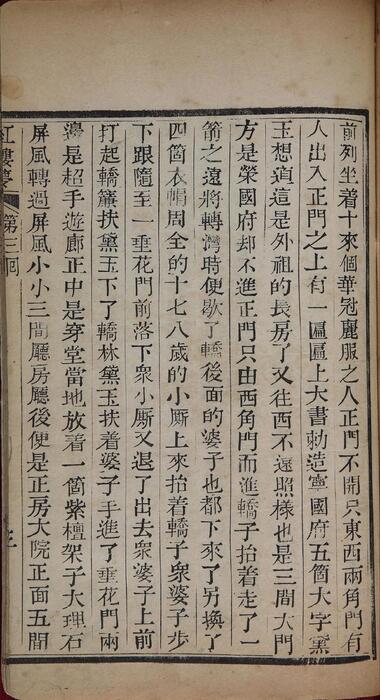 前列坐着十來個華冠麗服之人正門不開只東西兩角門有
人出入正門之上有一匾匾上大書勅造寧國府五箇大字黛
玉想道這是外祖的長房了又往西不遠照樣也是三間大門
方是榮國府却不進正門只由西角門而進轎子抬着走了一
箭之遠將轉灣時便歇了轎後面的婆子也都下來了另換了
四箇衣帽周全的十七八歲的小厮上來抬着轎子衆婆子步
下跟隨至一垂花門前落下衆小厮又退了出去衆婆子上前
打起轎簾扶黛玉下了轎林黛玉扶着婆子手進了垂花門兩
邊是超手遊廊正中是穿堂當地放着一箇紫檀架子大理石
屏風轉過屏風小小三間廳房廳後便是正房大院正面五間
紅樓夢 第三囘